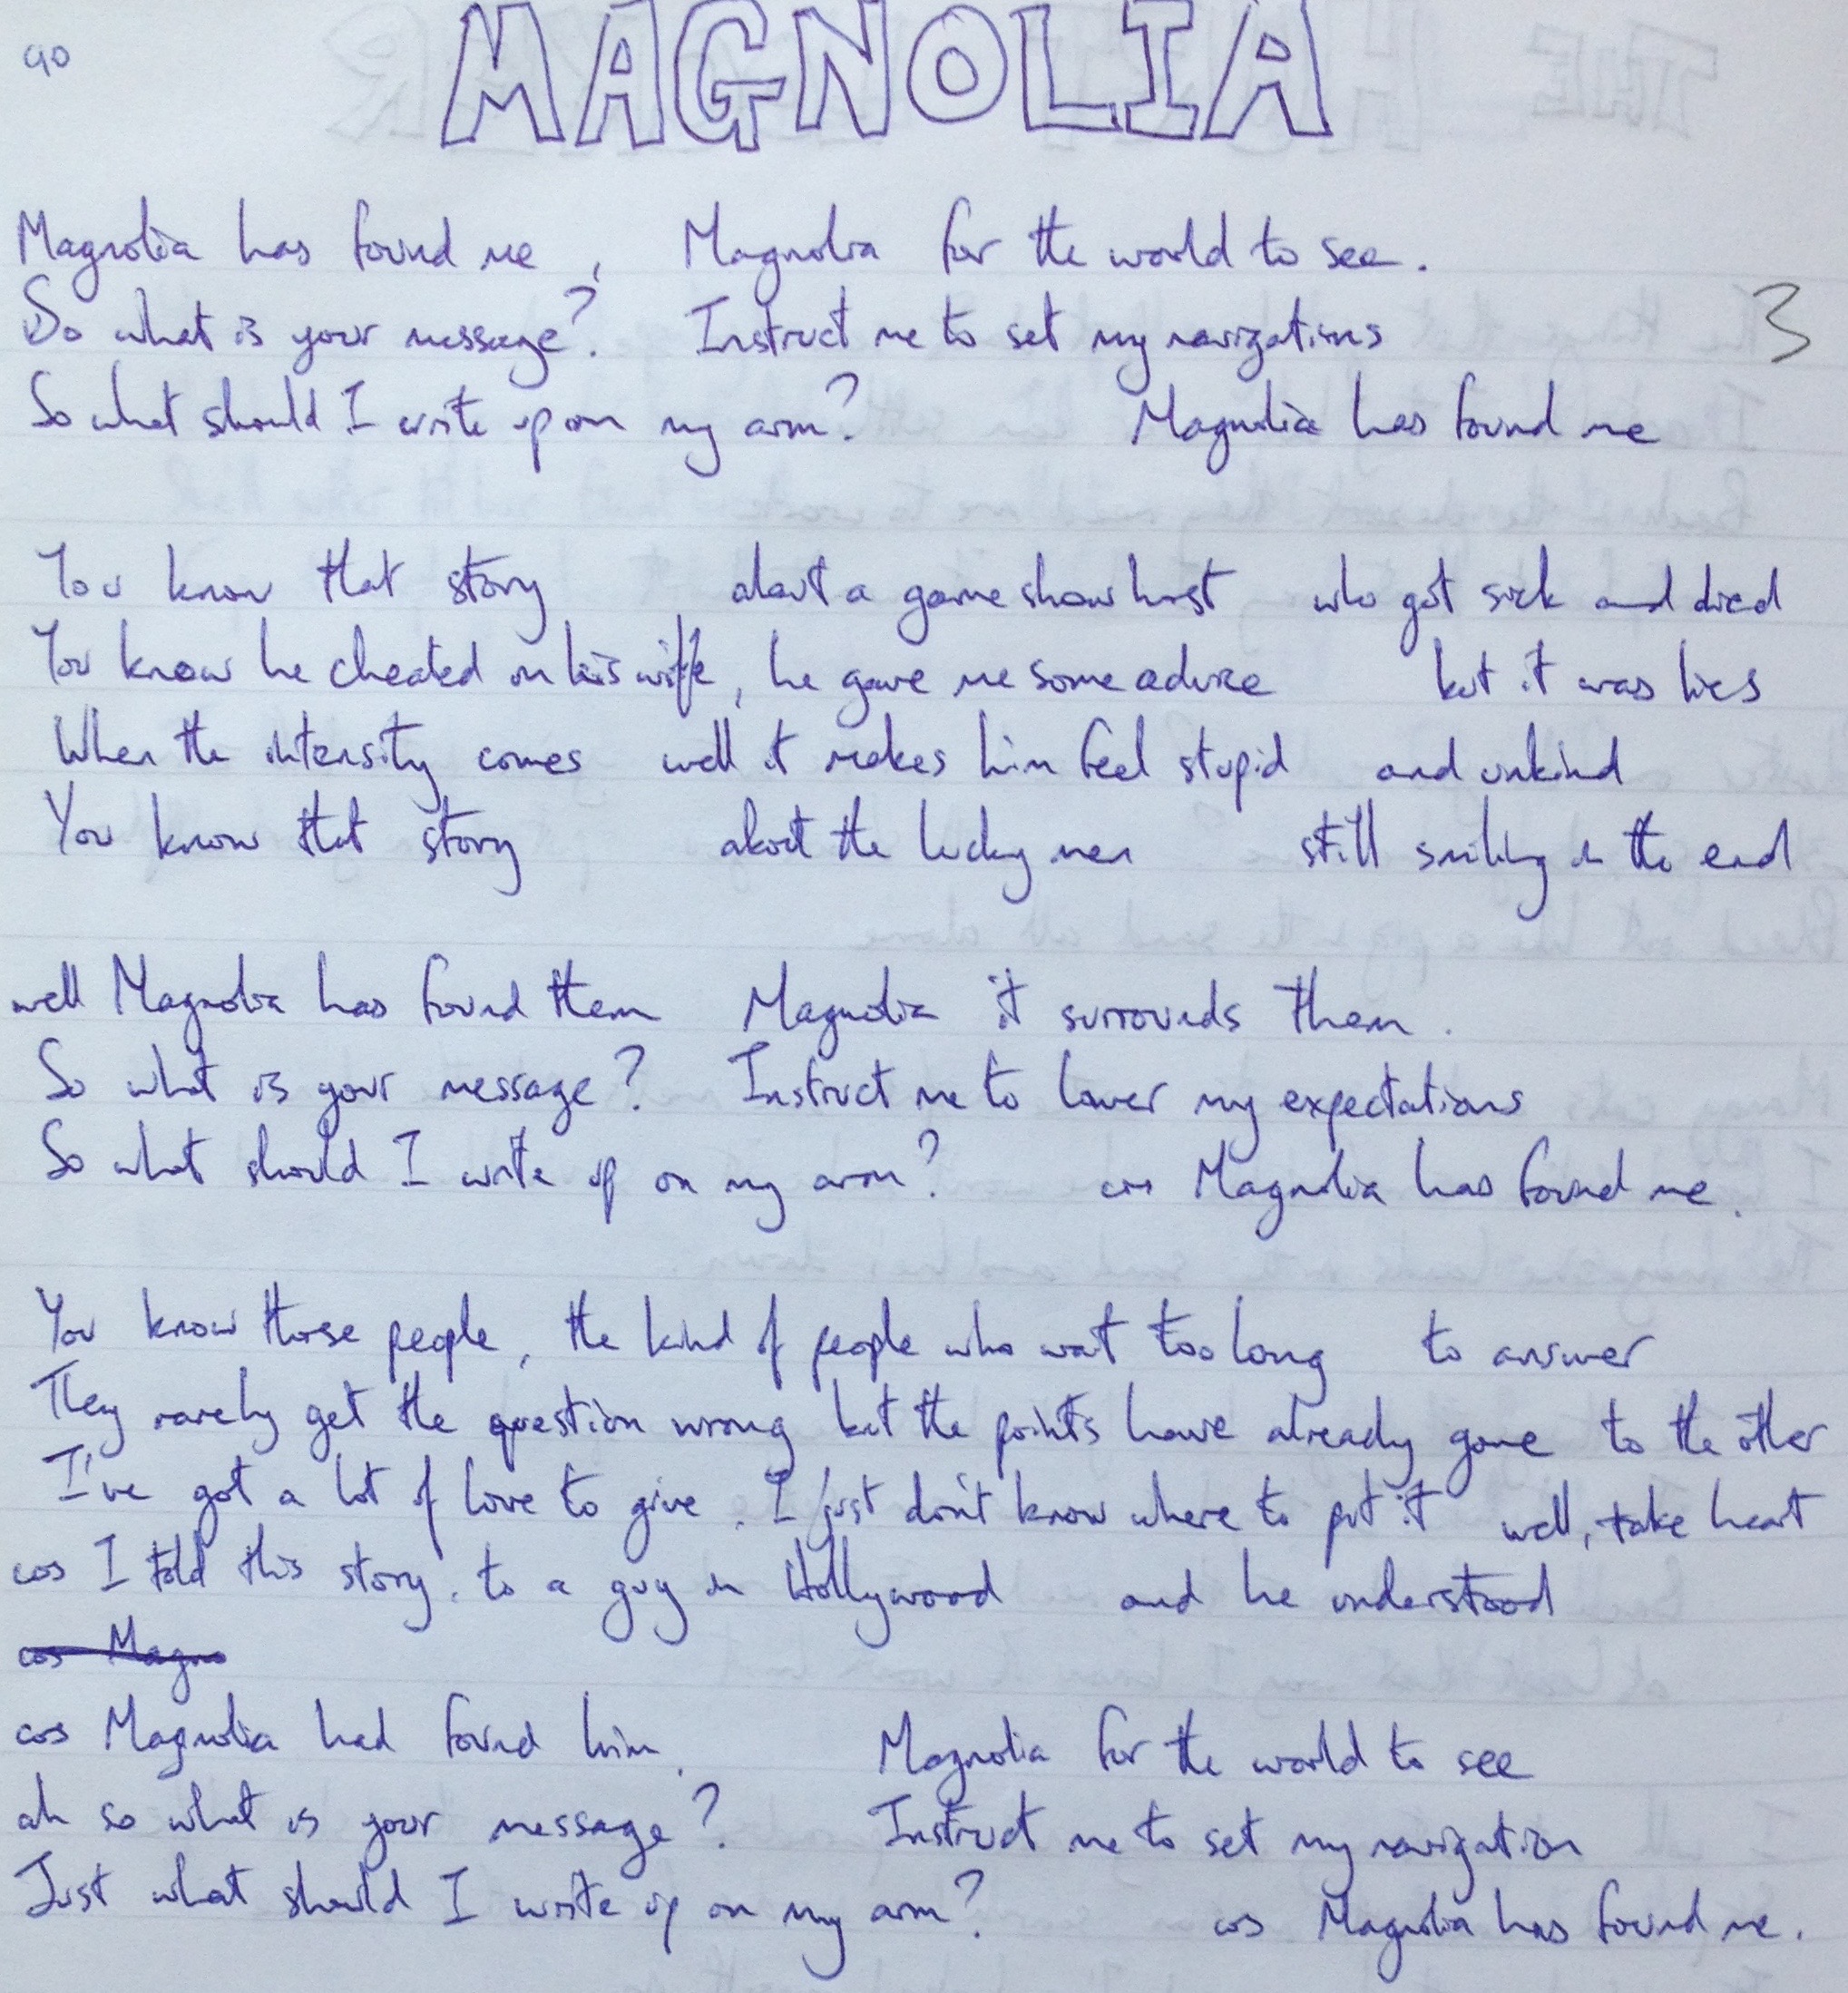 90
MAGNOLIA
Magnolia has found me, Magnolia for the world to see.
So what is your message? Instruct me to set my navigations
3
So what should I write up on my arm? Magnolia has found me
You know that story about a game show host who got sick and died
You know he cheated on his wife, he gave me some advice but it was lies
When the intensity comes well it makes him feel stupid and unkind
You know that story about the lucky men still smiling in the end
well Magnolia has found them Magnolia it surrounds them.
So what is your message? Instruct me to lower my expectations
So what should I write up on my arm? cos Magnolia has found me.
You know those people, the kind of people who wait too long to answer
They rarely get the question wrong but the points have already gone to the other
I've got a lot of love to give. I just don't know where to put it well, take heart
cos I told this story. to a guy in Hollywood and he understood
cos Magno
cos Magnolia had found him. Magnolia for the world to see
ah so what is your message? Instruct me to set my navigation
Just what should I write up on my arm? cos Magnolia has found me.